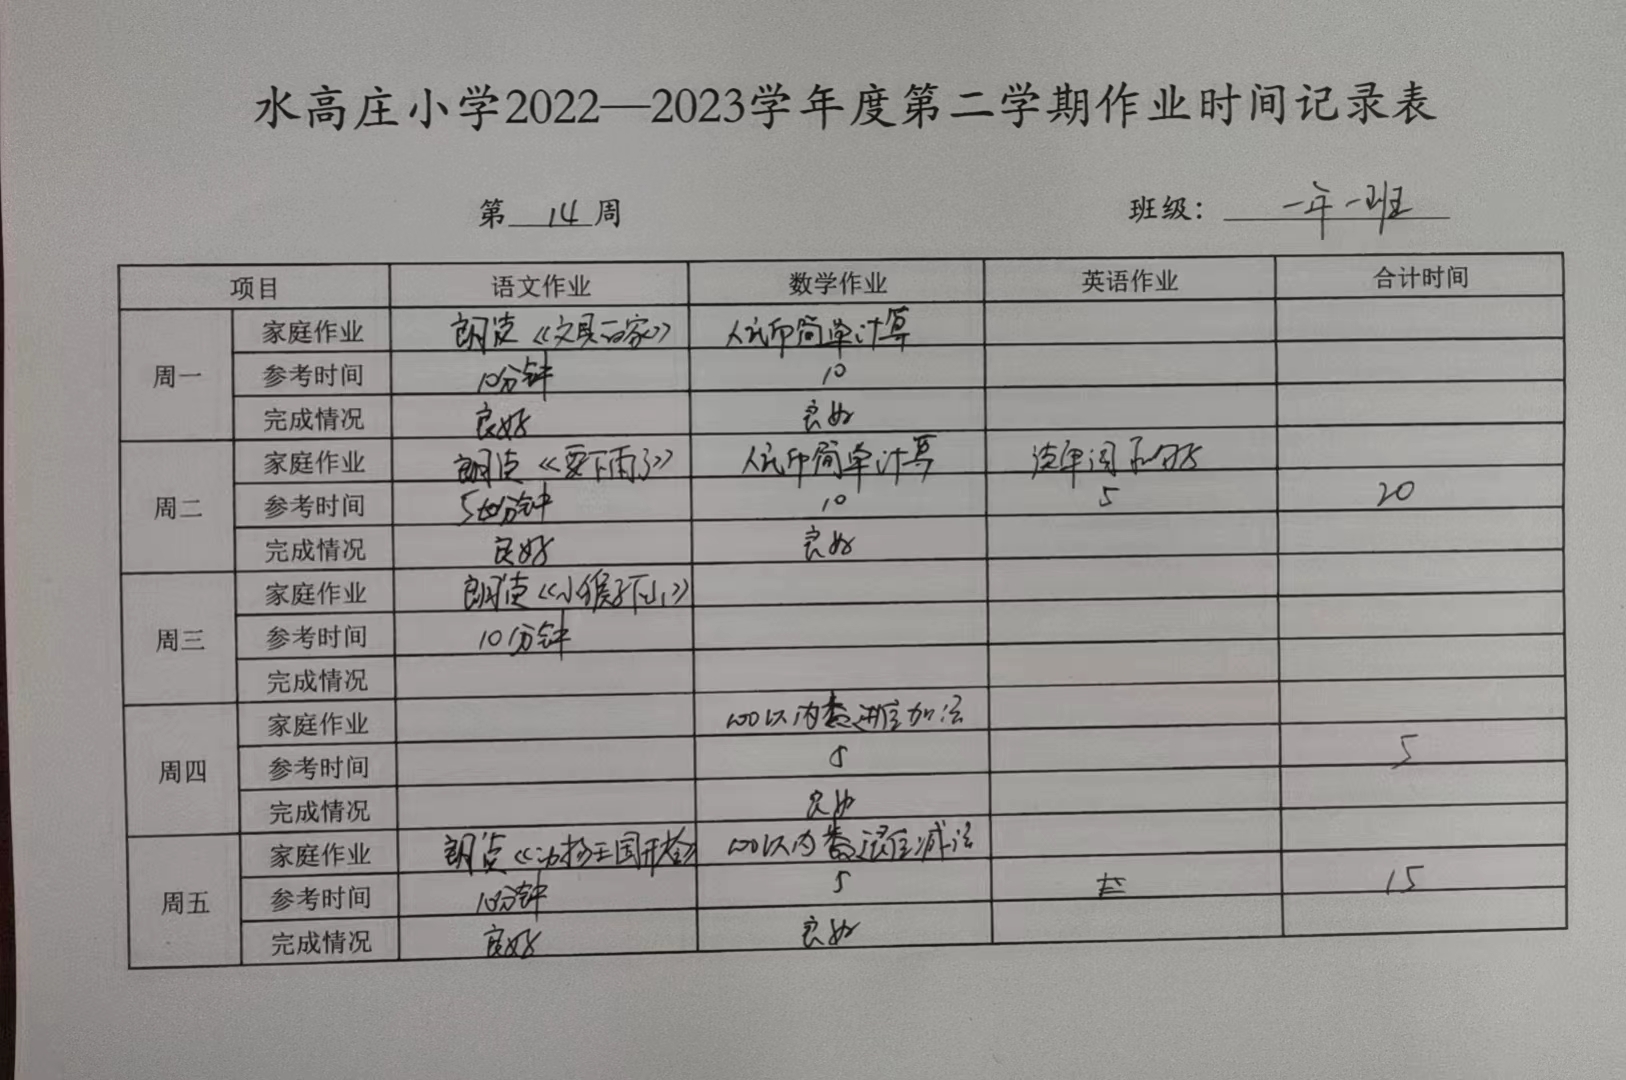 水高庄小学2022—2023学年度第二学期作业时间记录表
第 14 周 班级： 一年一班
项目 语文作业 数学作业 英语作业 合计时间
周一
家庭作业 朗读《文具的家》 人民币简单计算
参考时间 10分钟 10
完成情况 良好 良好
周二
家庭作业 朗读《要下雨了》 人民币简单计算 读单词和句子
参考时间 5分钟 10 5 20
完成情况 良好 良好
周三
家庭作业 朗读《小猴子下山》
参考时间 10分钟
完成情况
周四
家庭作业 100以内数进位加法
参考时间 5 5
完成情况 良好
周五
家庭作业 朗读《动物王国开大会》 100以内数退位减法
参考时间 10分钟 5 15
完成情况 良好 良好